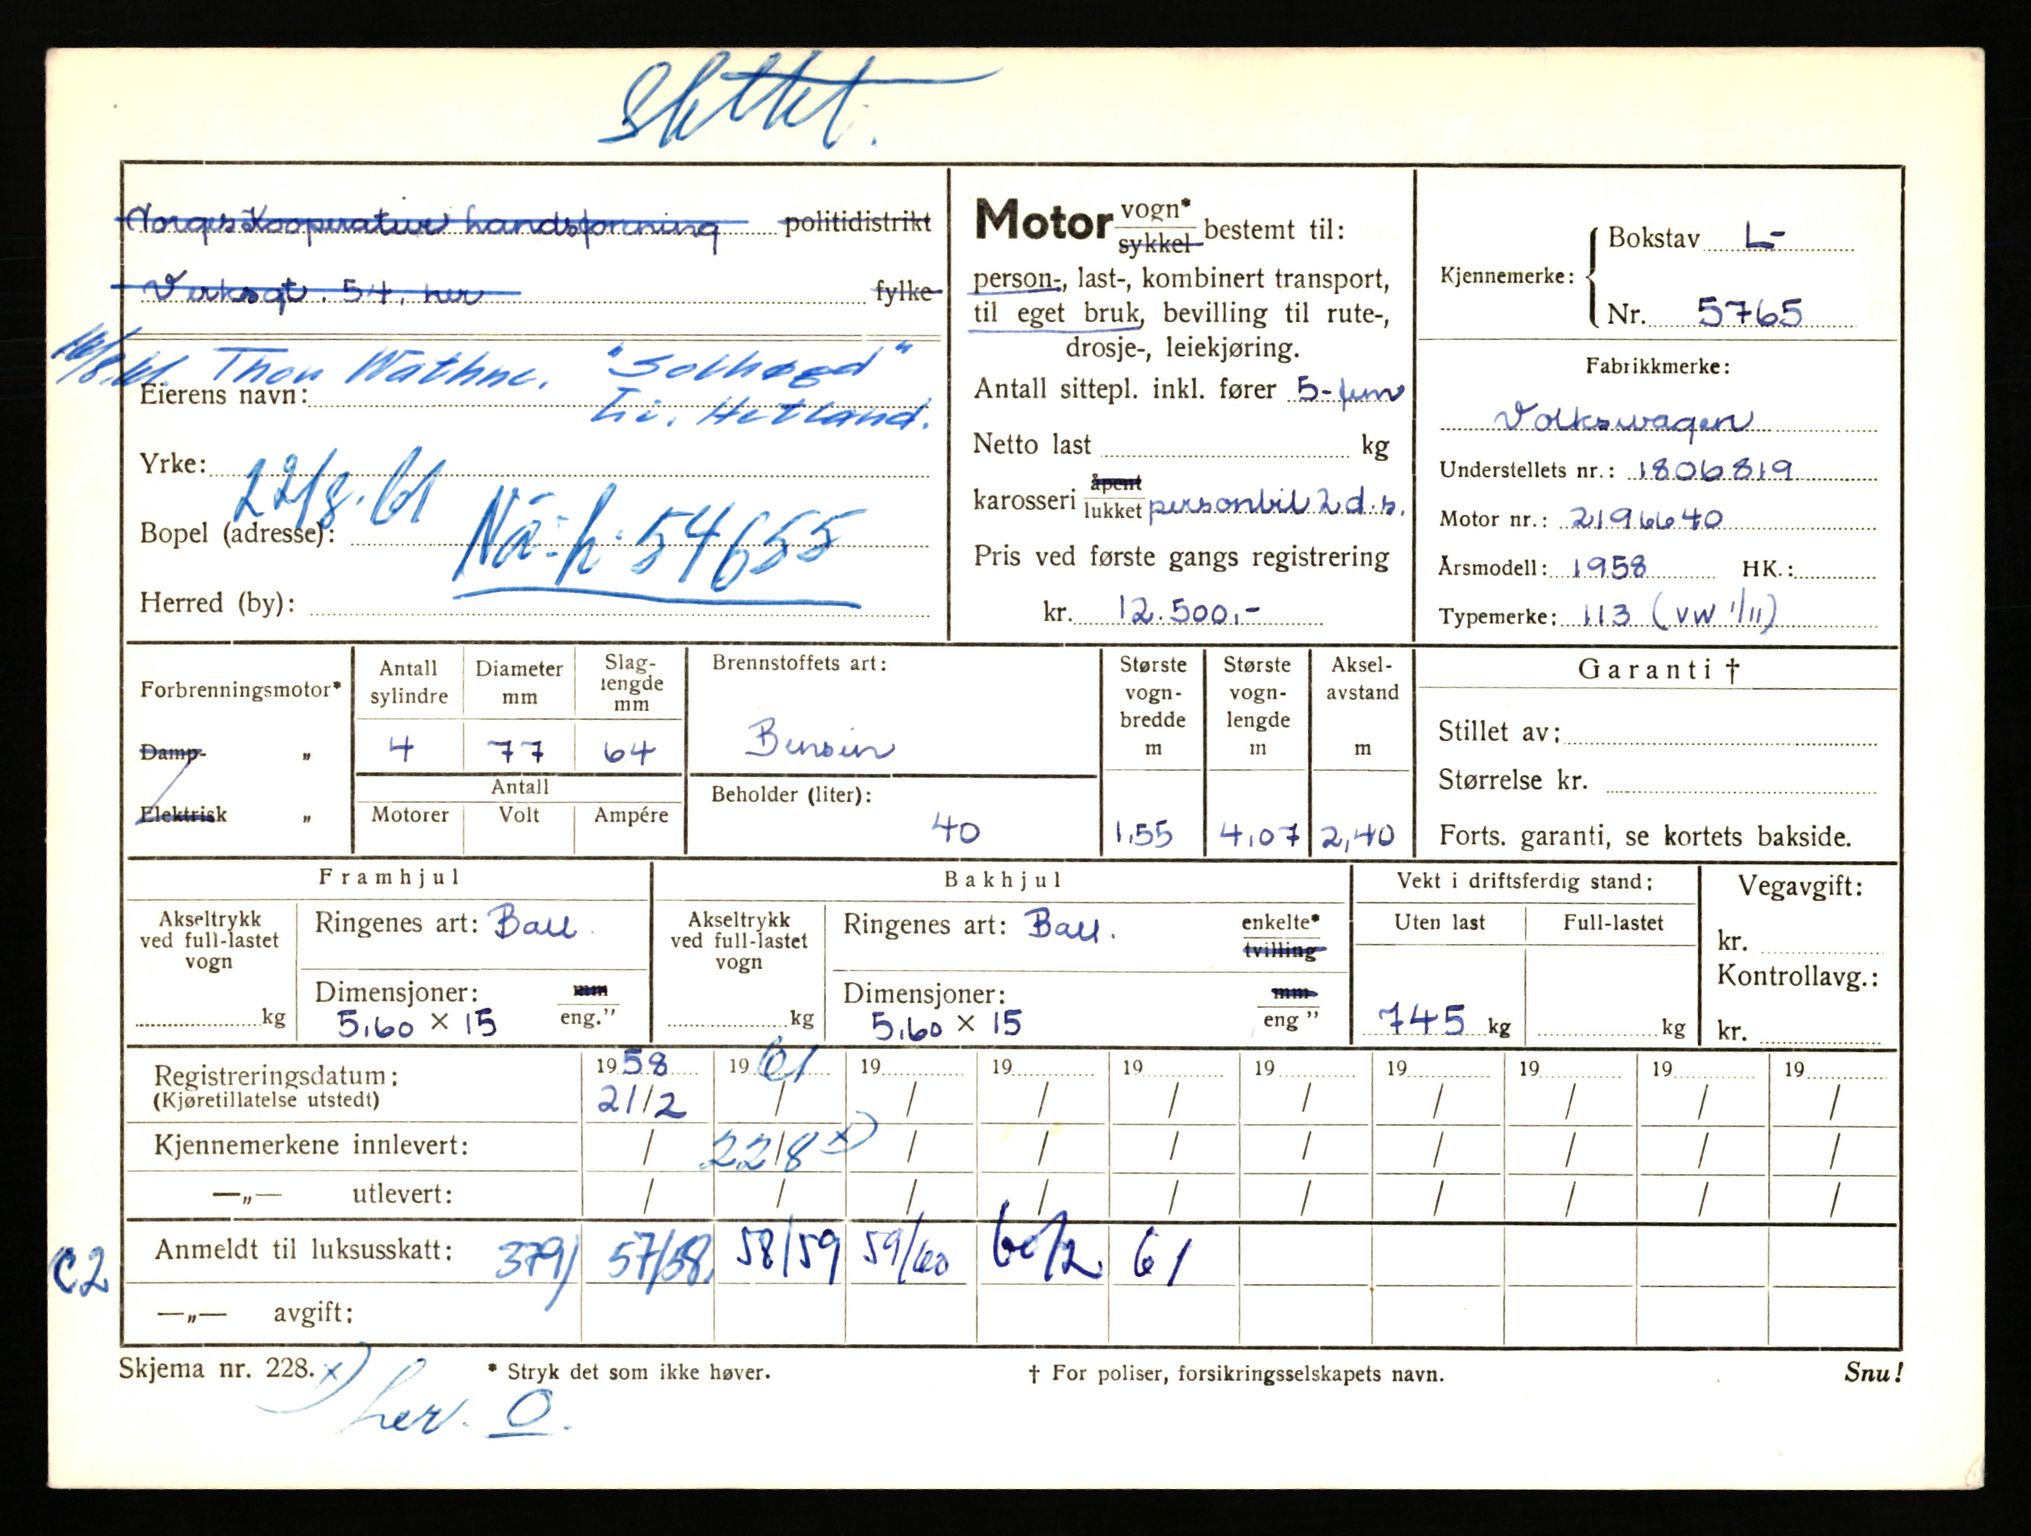 Slettet.
Norges Kooperative handsforening politidistrikt
Verksgt. 54, her fylke
16/8.61. Thor Wathne. "Solhøgd"
Eierens navn: Li. Hetland.
Yrke:
22/8.61
Bopel (adresse): Nå: h: 54655
Herred (by):
Motor vogn* sykkel bestemt til:
person-, last-, kombinert transport,
til eget bruk, bevilling til rute-,
drosje-, leiekjøring.
Antall sittepl. inkl. fører 5-fem
Netto last kg
karosseri åpent lukket personbil 2 d.s.
Pris ved første gangs registrering
kr. 12.500,-
Kjennemerke: Bokstav L-
Nr. 5765
Fabrikkmerke:
Volkswagen
Understellets nr.: 1806819
Motor nr.: 2196640
Årsmodell: 1958 HK.:
Typemerke: 113 (VW 1/11)
Forbrenningsmotor*
Damp- "
Elektrisk "
Antall sylindre 4
Diameter mm 77
Slaglengde mm 64
Antall
Motorer Volt Ampére
Brennstoffets art:
Bensin
Beholder (liter):
40
Største vogn-bredde m 1,55
Største vogn-lengde m 4,07
Aksel-avstand m 2,40
Garanti †
Stillet av:
Størrelse kr.
Forts. garanti, se kortets bakside.
Framhjul
Akseltrykk ved full-lastet vogn kg
Ringenes art: Ball.
Dimensjoner: mm
5,60 × 15 eng."
Bakhjul
Akseltrykk ved full-lastet vogn kg
Ringenes art: Ball. enkelte* tvilling
Dimensjoner: mm
5,60 × 15 eng "
Vekt i driftsferdig stand:
Uten last Full-lastet
745 kg kg
Vegavgift:
kr.
Kontrollavg.:
kr.
Registreringsdatum: 1958 1961 19 19 19 19 19 19 19 19
(Kjøretillatelse utstedt) 21/2 / / / / / / / / /
Kjennemerkene innlevert: / 22/8 x) / / / / / / / /
—„— utlevert: / / / / / / / / / /
C2 Anmeldt til luksusskatt: 379) 57/58. 58/59 59/60 60/2. 61
—„— avgift:
Skjema nr. 228. * Stryk det som ikke høver. † For poliser, forsikringsselskapets navn. Snu!
x) her. O.